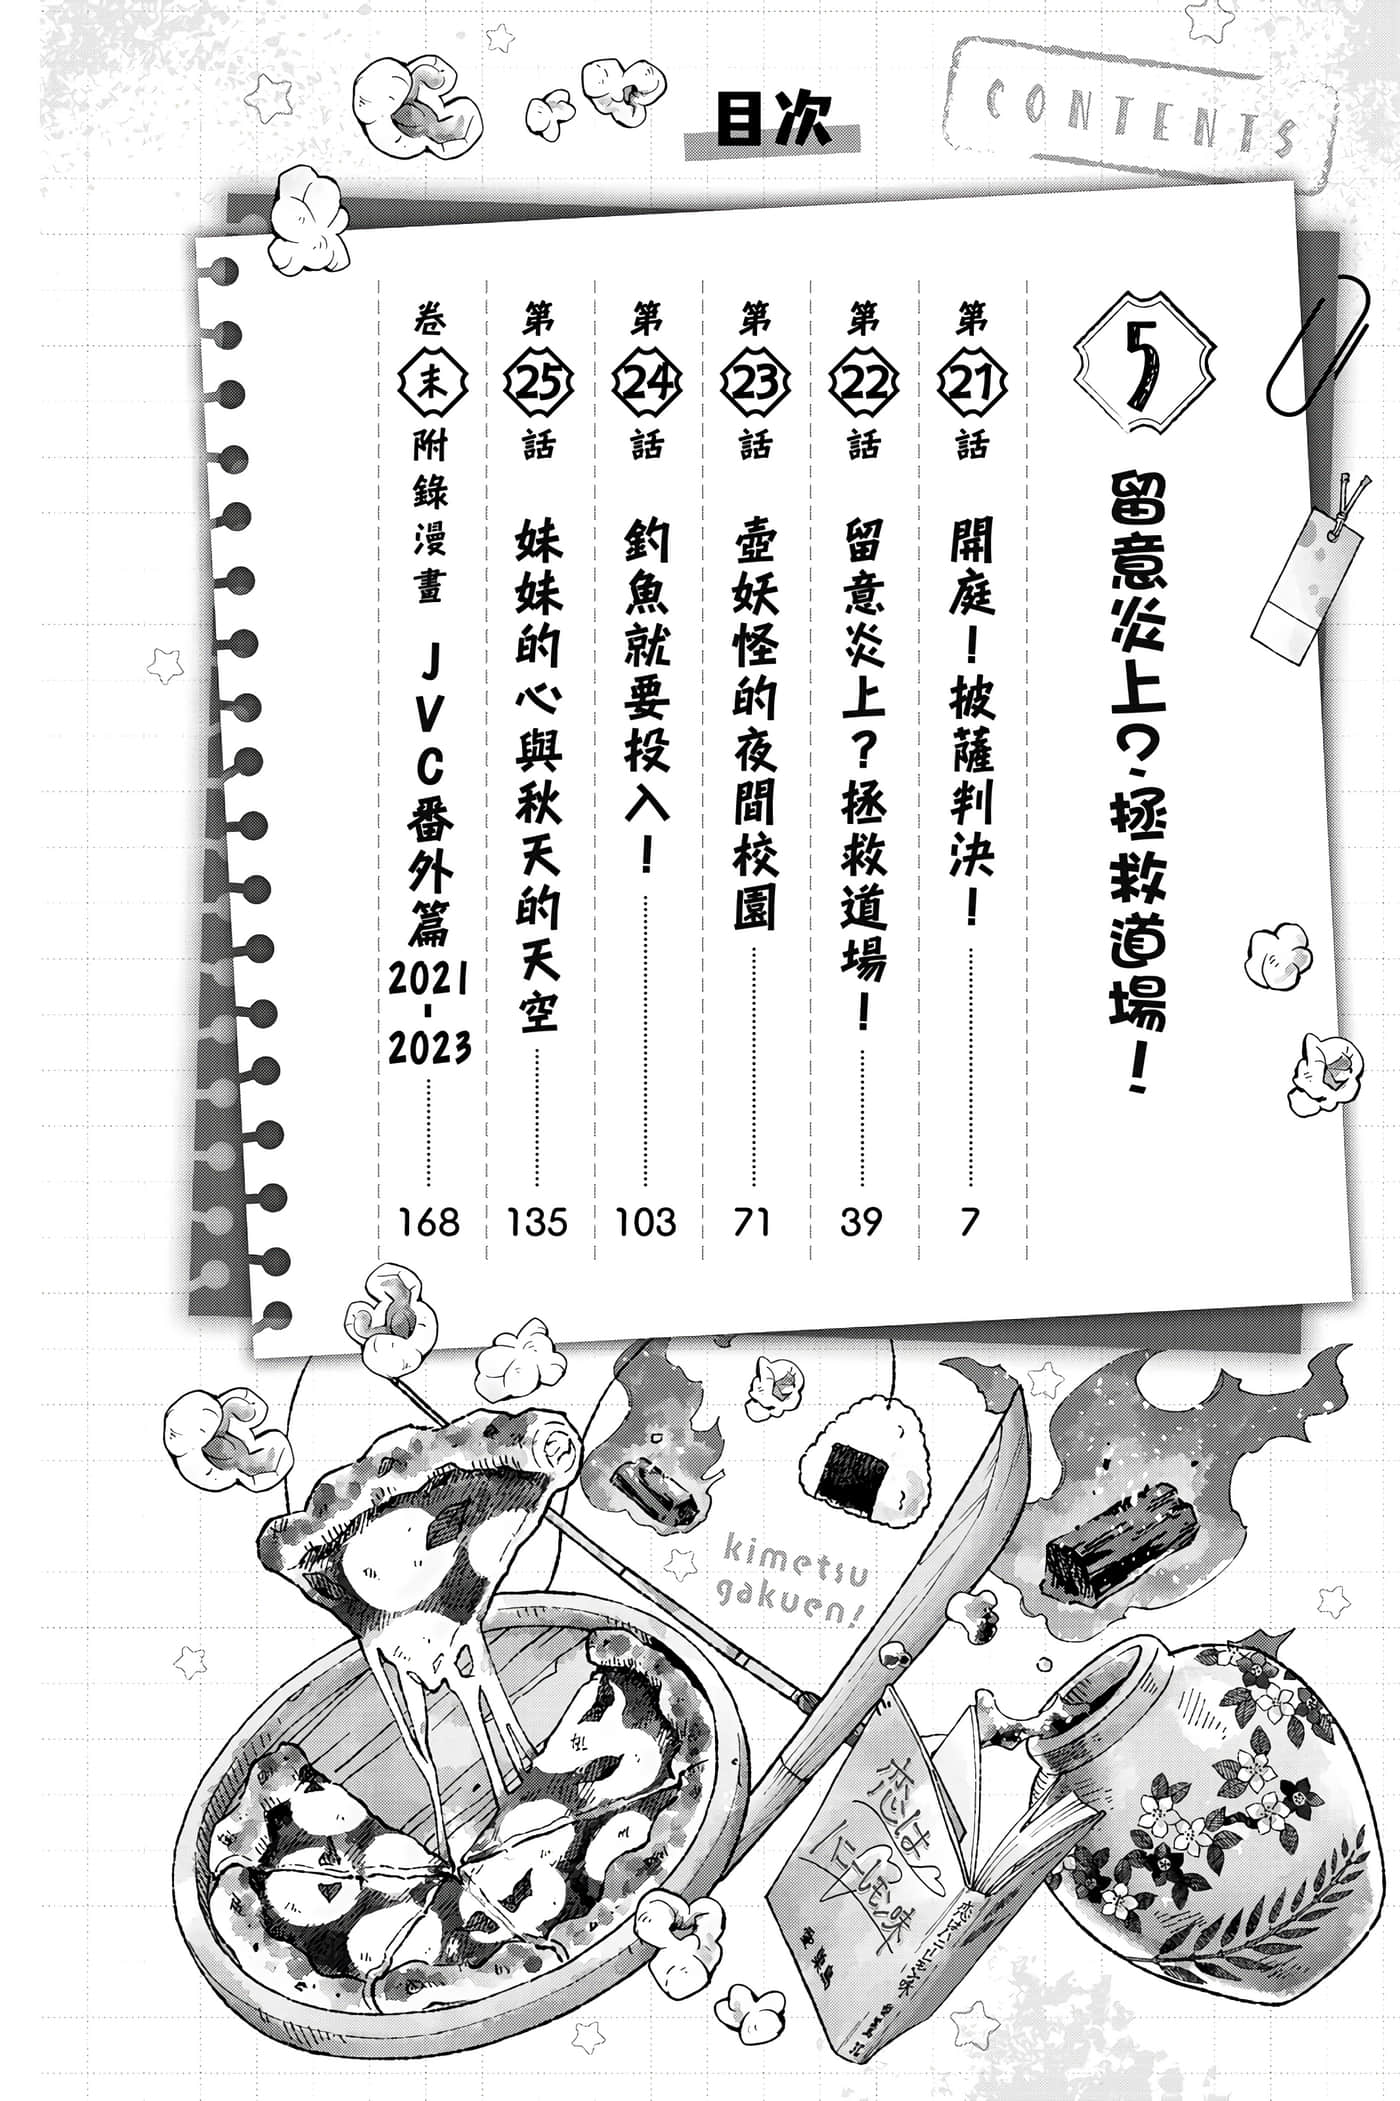 目次
CONTENTS
5
留意炎上？拯救道場！
第21話 開庭！披薩判決！ 7
第22話 留意炎上？拯救道場！ 39
第23話 壺妖怪的夜間校園 71
第24話 釣魚就要投入！ 103
第25話 妹妹的心與秋天的天空 135
卷末附錄漫畫 JVC番外篇2021-2023 168
kimetsu
gakuen!
恋は
味